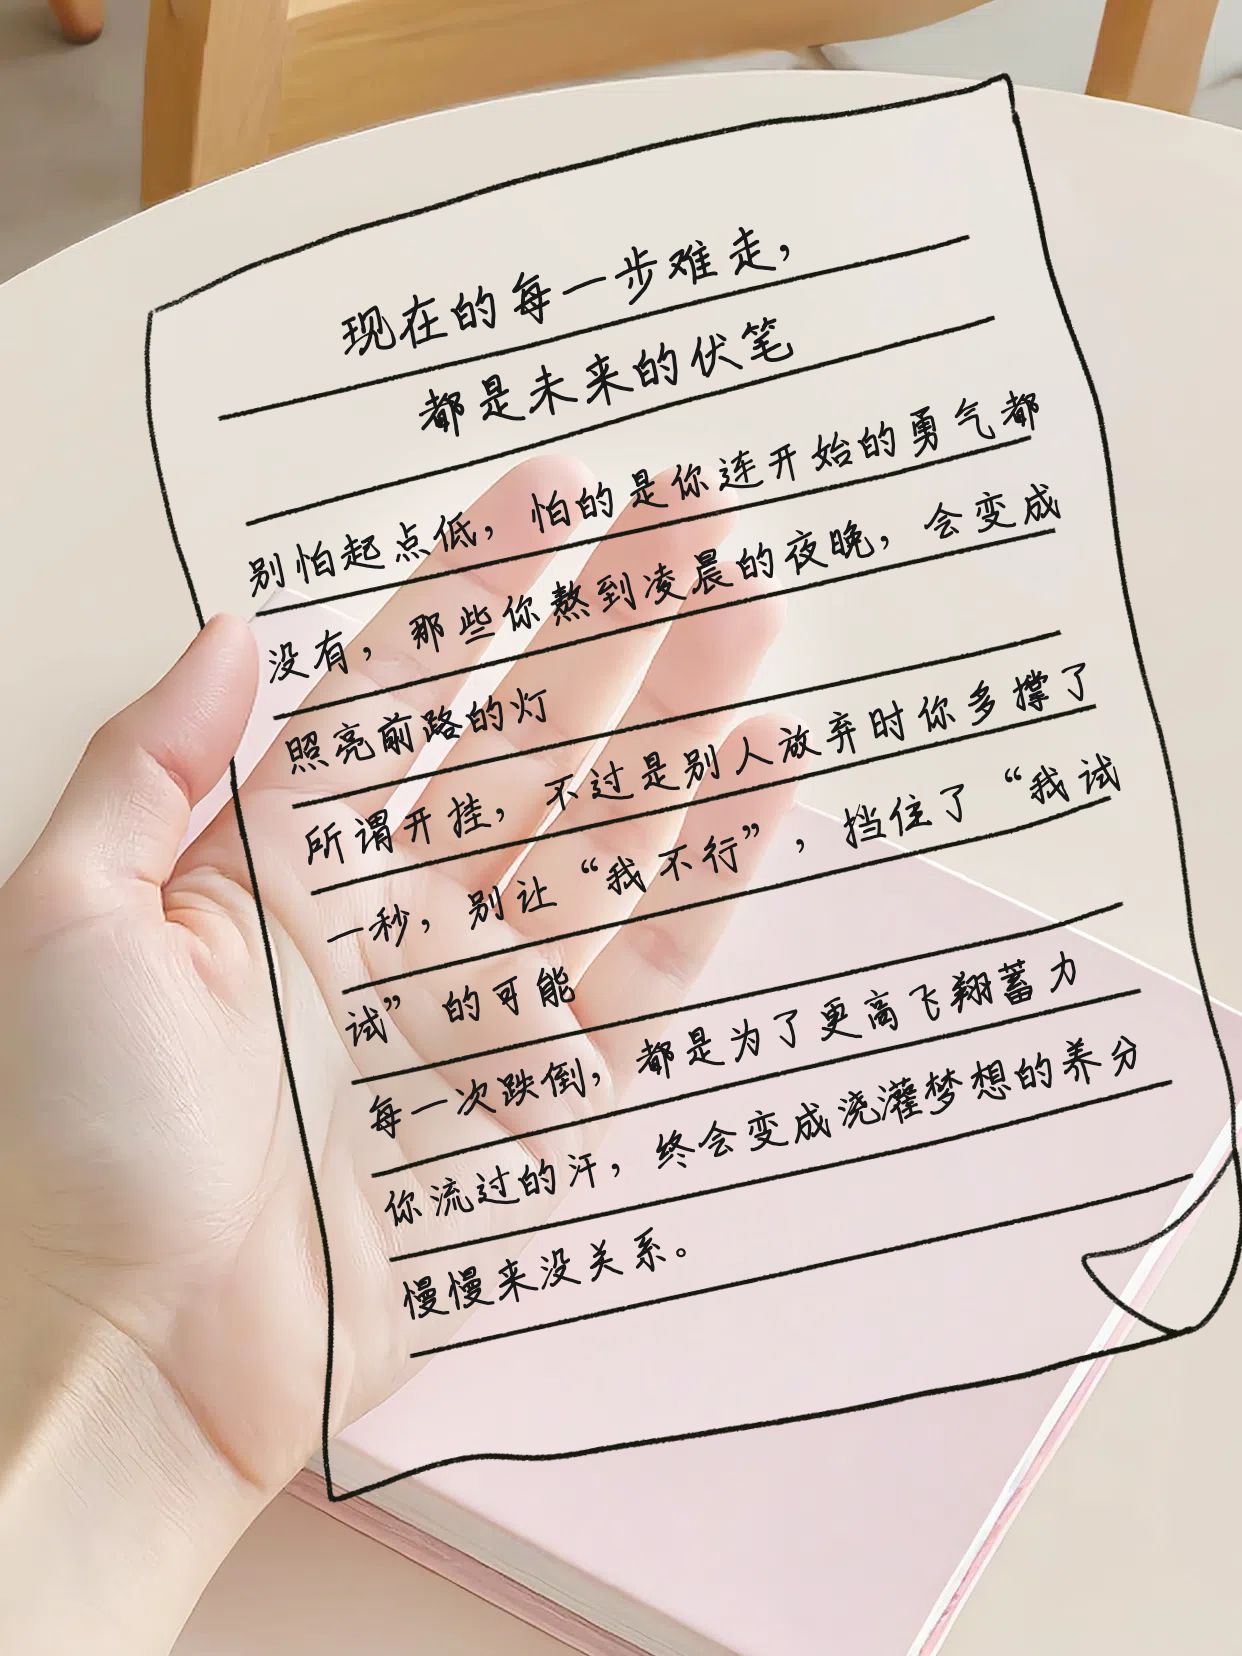 现在的每一步难走，
都是未来的伏笔
别怕起点低，怕的是你连开始的勇气都
没有，那些你熬到凌晨的夜晚，会变成
照亮前路的灯
所谓开挂，不过是别人放弃时你多撑了
一秒，别让“我不行”，挡住了“我试
试”的可能
每一次跌倒，都是为了更高飞翔蓄力
你流过的汗，终会变成浇灌梦想的养分
慢慢来没关系。